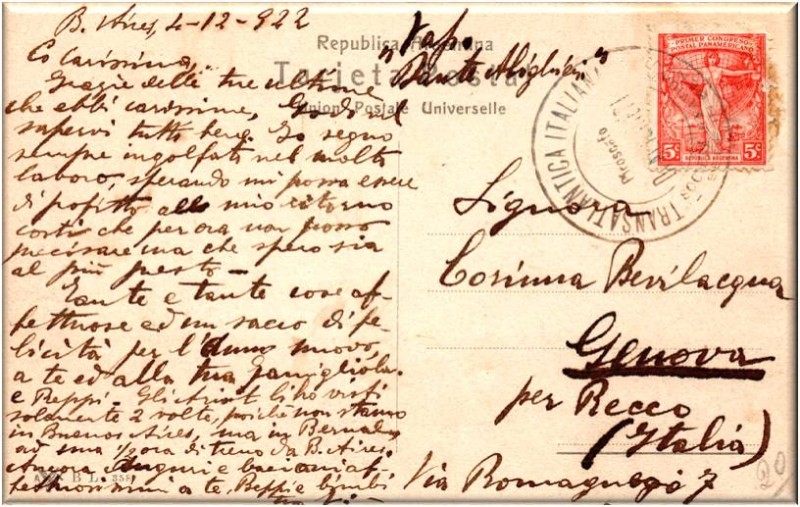 B. Aires, 4-12-922
Carissima,
Grazie delle tue ultime
che ebbi carissime, Godo di
sapervi tutti bene. Io seguo
sempre ingolfato nel molto
lavoro, sperando mi possa essere
di profitto al mio ritorno
costì che per ora non posso
precisare ma che spero sia
al più presto -
Tante e tante cose af-
fettuose ed un sacco di fe-
licità per l'anno nuovo,
a te ed alla tua famigliola
e Beppi - Gli li ho visti
solamente 2 volte, poiché non stanno
in Buenos Aires, ma in Bernal
ad una 1/2 ora di treno da B. Aires.
Ancora auguri e bacioni af-
fettuosissimi a te, Beppi e bimbi
B L. 358
Republica Argentina
Tarjeta Postal
Union Postale Universelle
"Vapo
Dante Alighieri"
TRANSATLANTICA ITALIANA
PRIMER CONGRESO
POSTAL PANAMERICANO
5c 5c
REPUBLICA ARGENTINA
Signora
Corinna Bevilacqua
Genova
per Recco
(Italia)
Via Romagnego 7
20